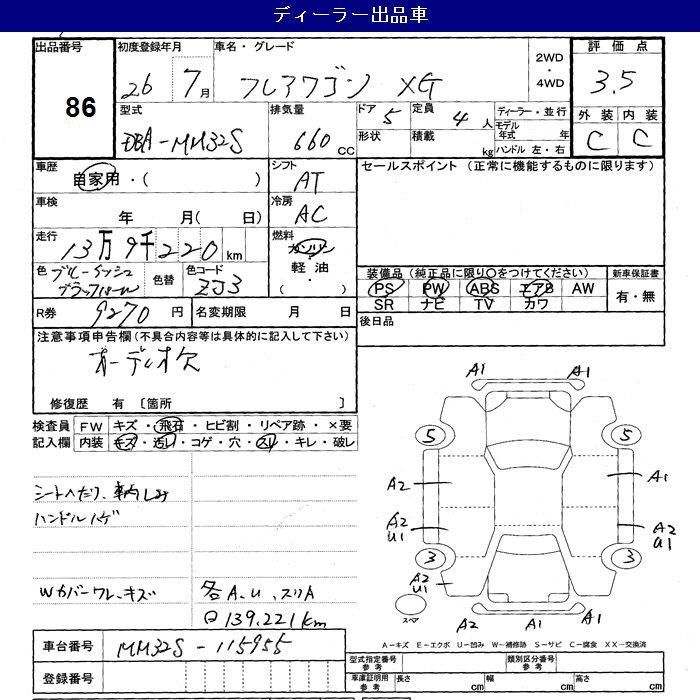 ディーラー出品車
出品番号 86
初度登録年月 26 7月
車名・グレード フレアワゴン XG
2WD・4WD
評価点 3.5
外装 C 内装 C
型式 DBA-MM32S
排気量 660 CC
ドア 5 定員 4 人
形状 積載 kg
ディーラー・並行
モデル年式 年
ハンドル 左・右
車歴 自家用・( )
シフト AT
セールスポイント (正常に機能するものに限ります)
車検 年 月( 日)
冷房 AC
走行 13万9千220 km
燃料 ガソリン・軽油・( )
色替
色コード ZJ3
R券 9270 円
名変期限 月 日
装備品(純正品に限り○をつけてください)
PS PW ABS エアB AW
SR ナビ TV カワ
新車保証書 有・無
後日品
注意事項申告欄(不具合内容等は具体的に記入して下さい)
オーディオ欠
修復歴 有 〔箇所 〕
検査員記入欄
FW キズ・飛石・ヒビ割・リペア跡・×要
内装 キズ・汚レ・コゲ・穴・スレ・キレ・破レ
シートヘたり、車内しみ
ハンドルハゲ
Wカバーワレ、キズ
各A.U、スリA
139.221km
車台番号 MM32S-115955
登録番号
A1 A1
5 5
A2 A1
A2 U1 A2 U1
3 3
A2 U1
スペア
A2 A1 A1
A-キズ E-エクボ U-凹み W-補修跡 S-サビ C-腐食 XX-交換済
型式指定番号 参考
類別区分番号 参考
車庫証明用 参考 長さ cm 幅 cm 高さ cm